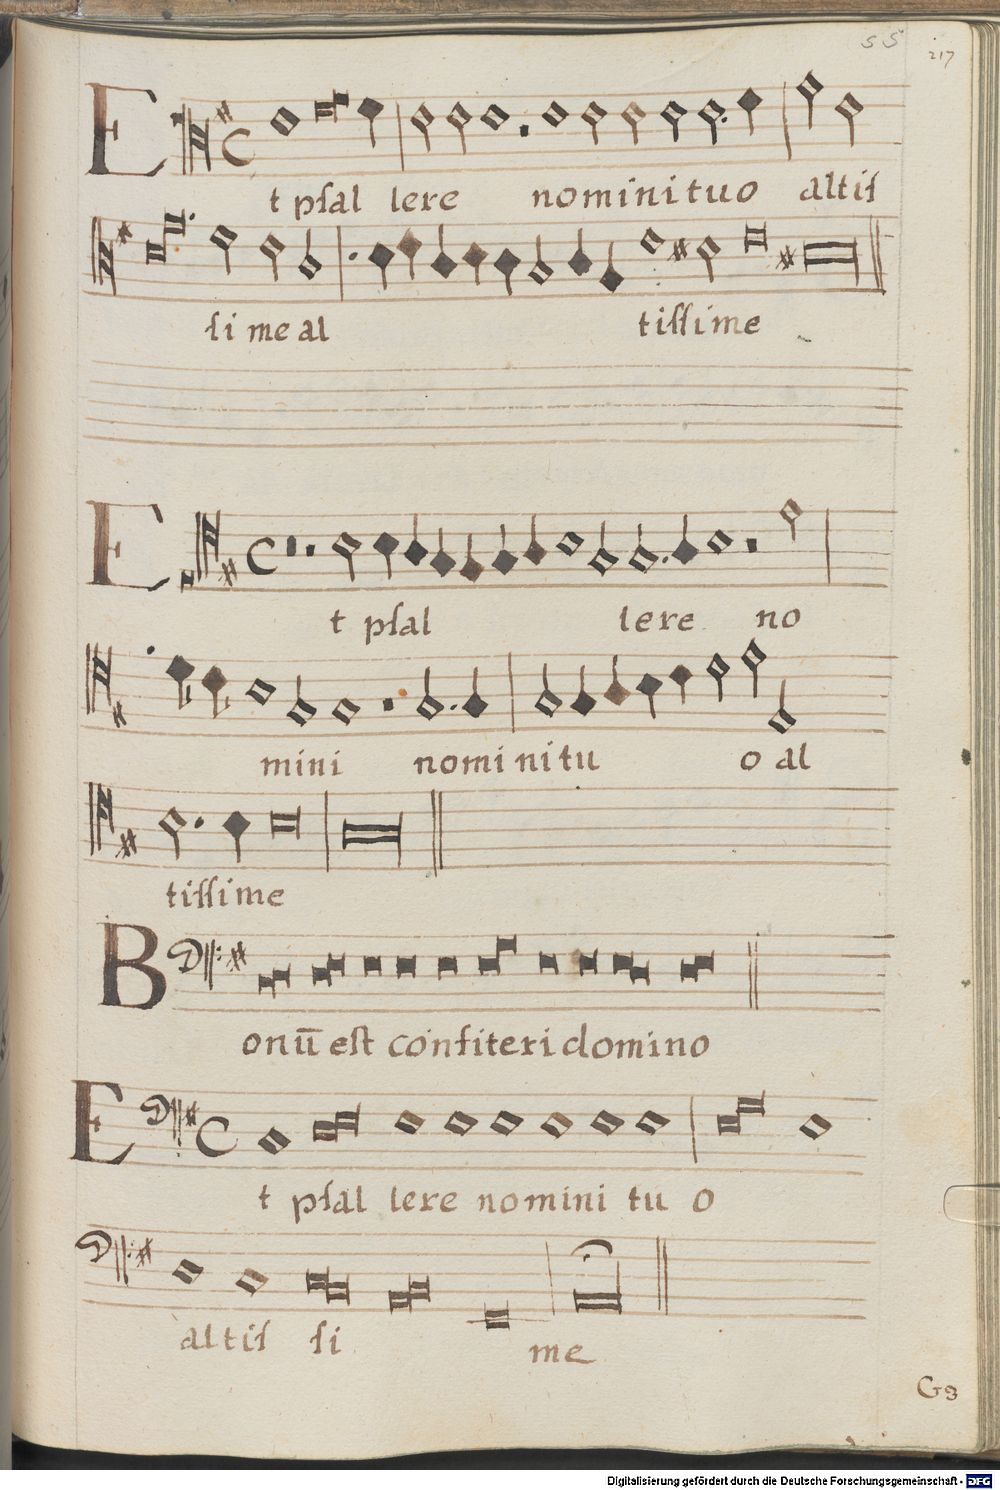 55
217
Et pſal lere nomini tuo altiſ
ſi me al tiſſime
Et pſal lere no
mini nomi ni tu o al
tiſſime
Bonū eſt confiteri domino
Et pſal lere nomini tu o
altiſ ſi me
G3
Digitalisierung gefördert durch die Deutsche Forschungsgemeinschaft - DFG